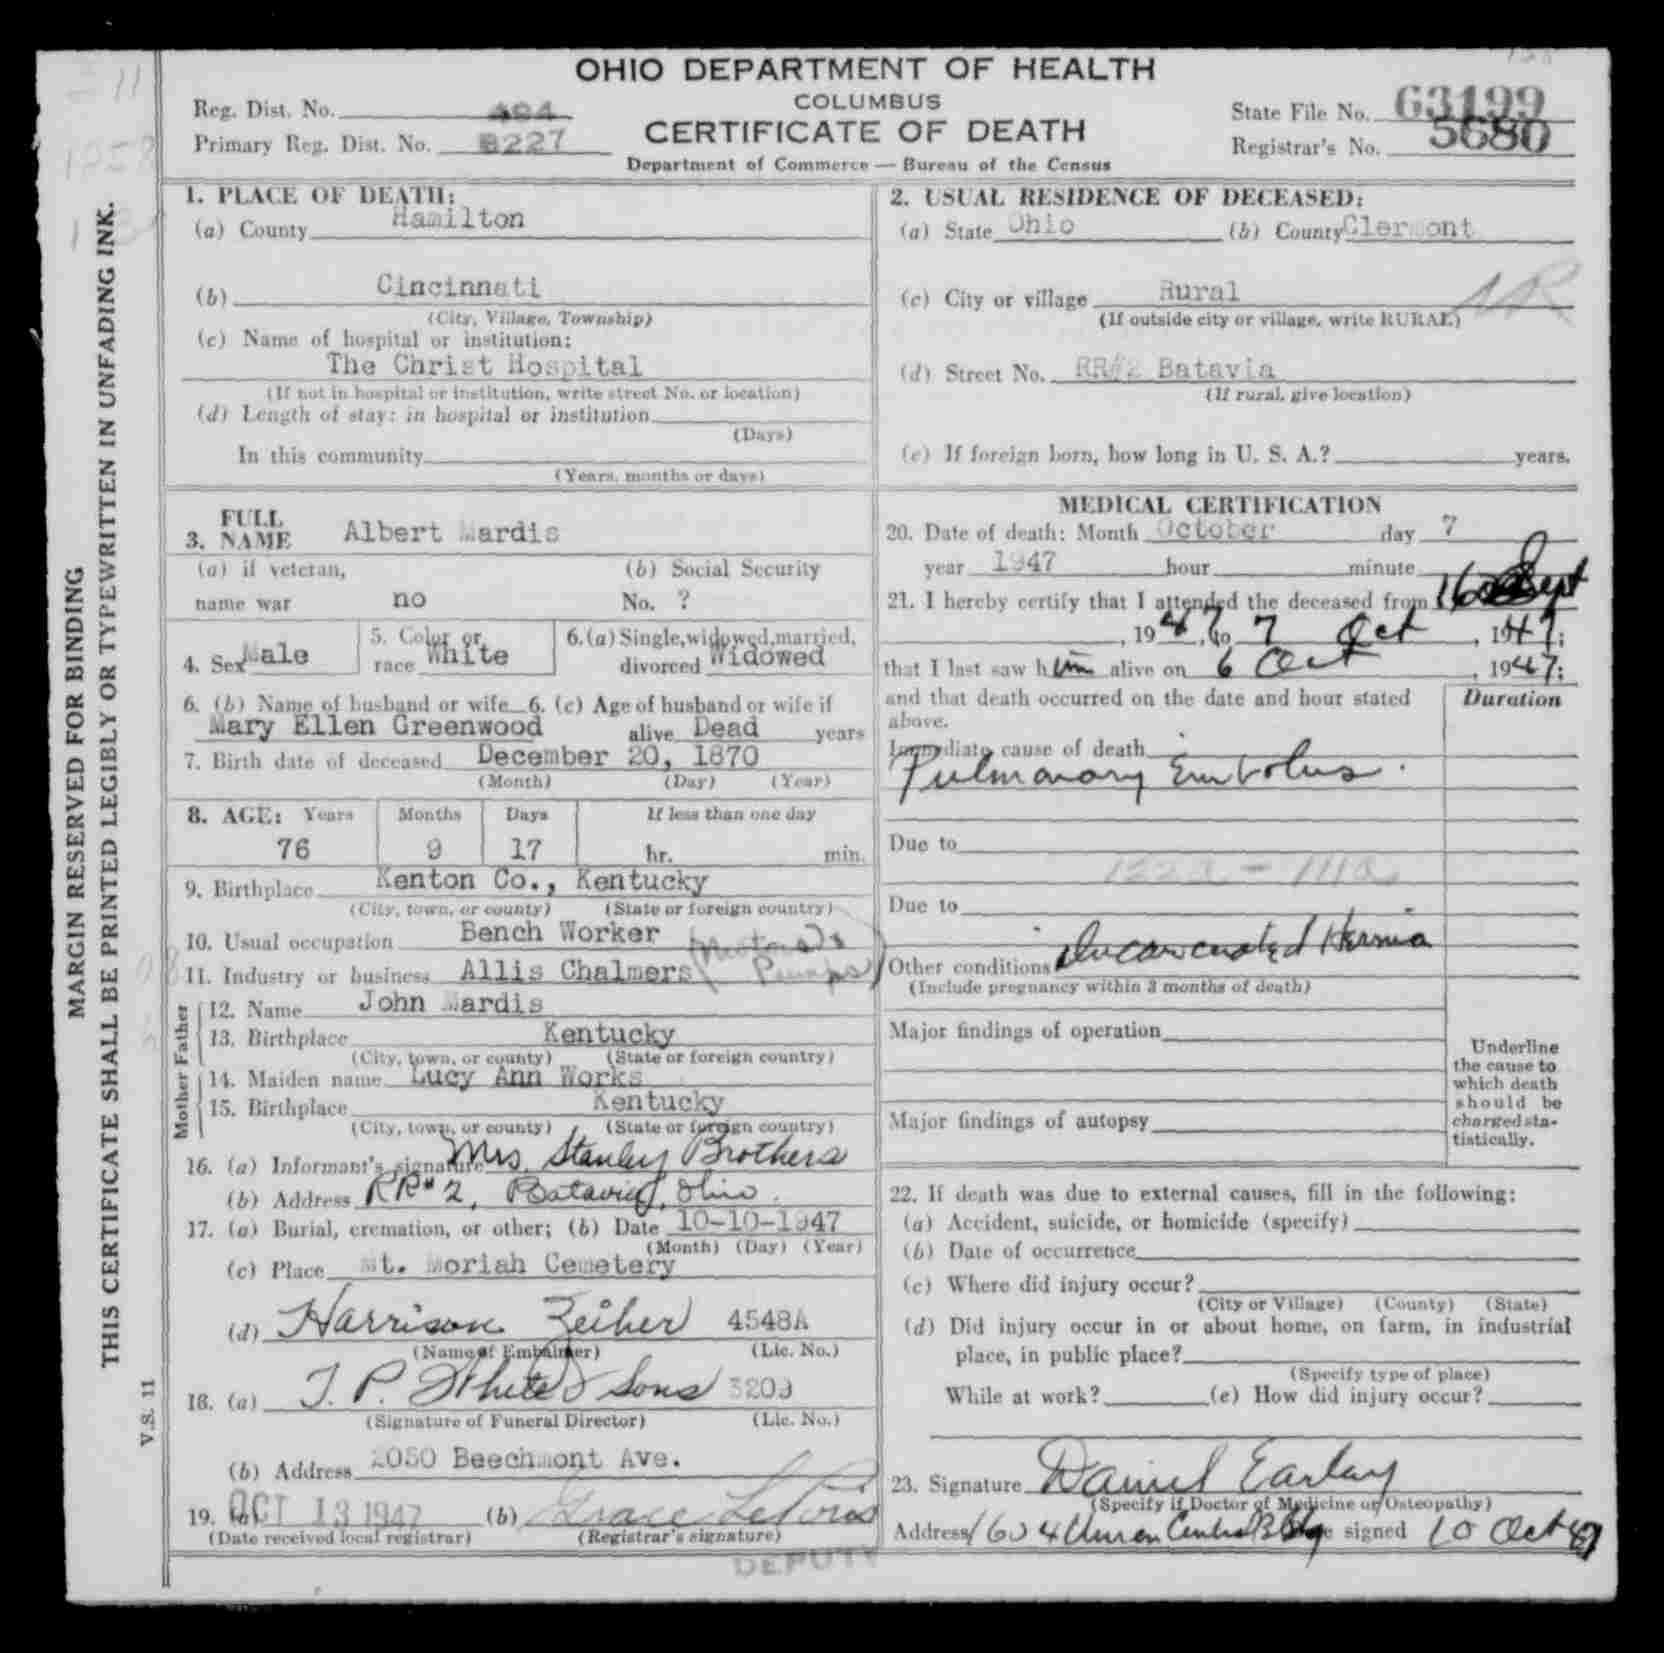 OHIO DEPARTMENT OF HEALTH
COLUMBUS
CERTIFICATE OF DEATH
Department of Commerce — Bureau of the Census
Reg. Dist. No. 494
Primary Reg. Dist. No. 8227
State File No. 63199
Registrar's No. 5680
MARGIN RESERVED FOR BINDING
THIS CERTIFICATE SHALL BE PRINTED LEGIBLY OR TYPEWRITTEN IN UNFADING INK.
V.S. 11
1. PLACE OF DEATH:
(a) County Hamilton
(b) Cincinnati
(City, Village, Township)
(c) Name of hospital or institution:
The Christ Hospital
(If not in hospital or institution, write street No. or location)
(d) Length of stay: in hospital or institution
(Days)
In this community
(Years, months or days)
2. USUAL RESIDENCE OF DECEASED:
(a) State Ohio (b) County Clermont
(c) City or village Rural
(If outside city or village, write RURAL)
(d) Street No. RR#2 Batavia
(If rural, give location)
(e) If foreign born, how long in U. S. A.? years.
3. FULL NAME Albert Mardis
(a) if veteran, name war no
(b) Social Security No. ?
4. Sex Male
5. Color or race White
6. (a) Single, widowed, married, divorced Widowed
6. (b) Name of husband or wife 6. (c) Age of husband or wife if
Mary Ellen Greenwood alive Dead years
7. Birth date of deceased December 20, 1870
(Month) (Day) (Year)
8. AGE: Years Months Days If less than one day
76 9 17 hr. min.
9. Birthplace Kenton Co., Kentucky
(City, town, or county) (State or foreign country)
10. Usual occupation Bench Worker
11. Industry or business Allis Chalmers (Motors & Pumps)
Father
12. Name John Mardis
13. Birthplace Kentucky
(City, town, or county) (State or foreign country)
Mother
14. Maiden name Lucy Ann Works
15. Birthplace Kentucky
(City, town, or county) (State or foreign country)
16. (a) Informant's signature Mrs. Stanley Brothers
(b) Address RR#2, Batavia, Ohio.
17. (a) Burial, cremation, or other; (b) Date 10-10-1947
(Month) (Day) (Year)
(c) Place Mt. Moriah Cemetery
(d) Harrison Zeiher 4548A
(Name of Embalmer) (Lic. No.)
18. (a) T. P. White & Sons 3209
(Signature of Funeral Director) (Lic. No.)
(b) Address 2050 Beechmont Ave.
19. OCT 13 1947 (b) Grace
(Date received local registrar) (Registrar's signature)
DEPUTY
MEDICAL CERTIFICATION
20. Date of death: Month October day 7
year 1947 hour minute
21. I hereby certify that I attended the deceased from 16 Sept
, 1947, to 7 Oct, 1947;
that I last saw him alive on 6 Oct, 1947;
and that death occurred on the date and hour stated above.
Duration
Immediate cause of death
Pulmonary Embolus.
Due to
122a - 111a
Due to
Other conditions Incarcerated Hernia
(Include pregnancy within 3 months of death)
Major findings of operation
Major findings of autopsy
Underline the cause to which death should be charged statistically.
22. If death was due to external causes, fill in the following:
(a) Accident, suicide, or homicide (specify)
(b) Date of occurrence
(c) Where did injury occur?
(City or Village) (County) (State)
(d) Did injury occur in or about home, on farm, in industrial
place, in public place?
(Specify type of place)
While at work? (e) How did injury occur?
23. Signature Daniel Earley
(Specify if Doctor of Medicine or Osteopathy)
Address 1604 Union Central Bldg Date signed 10 Oct 47